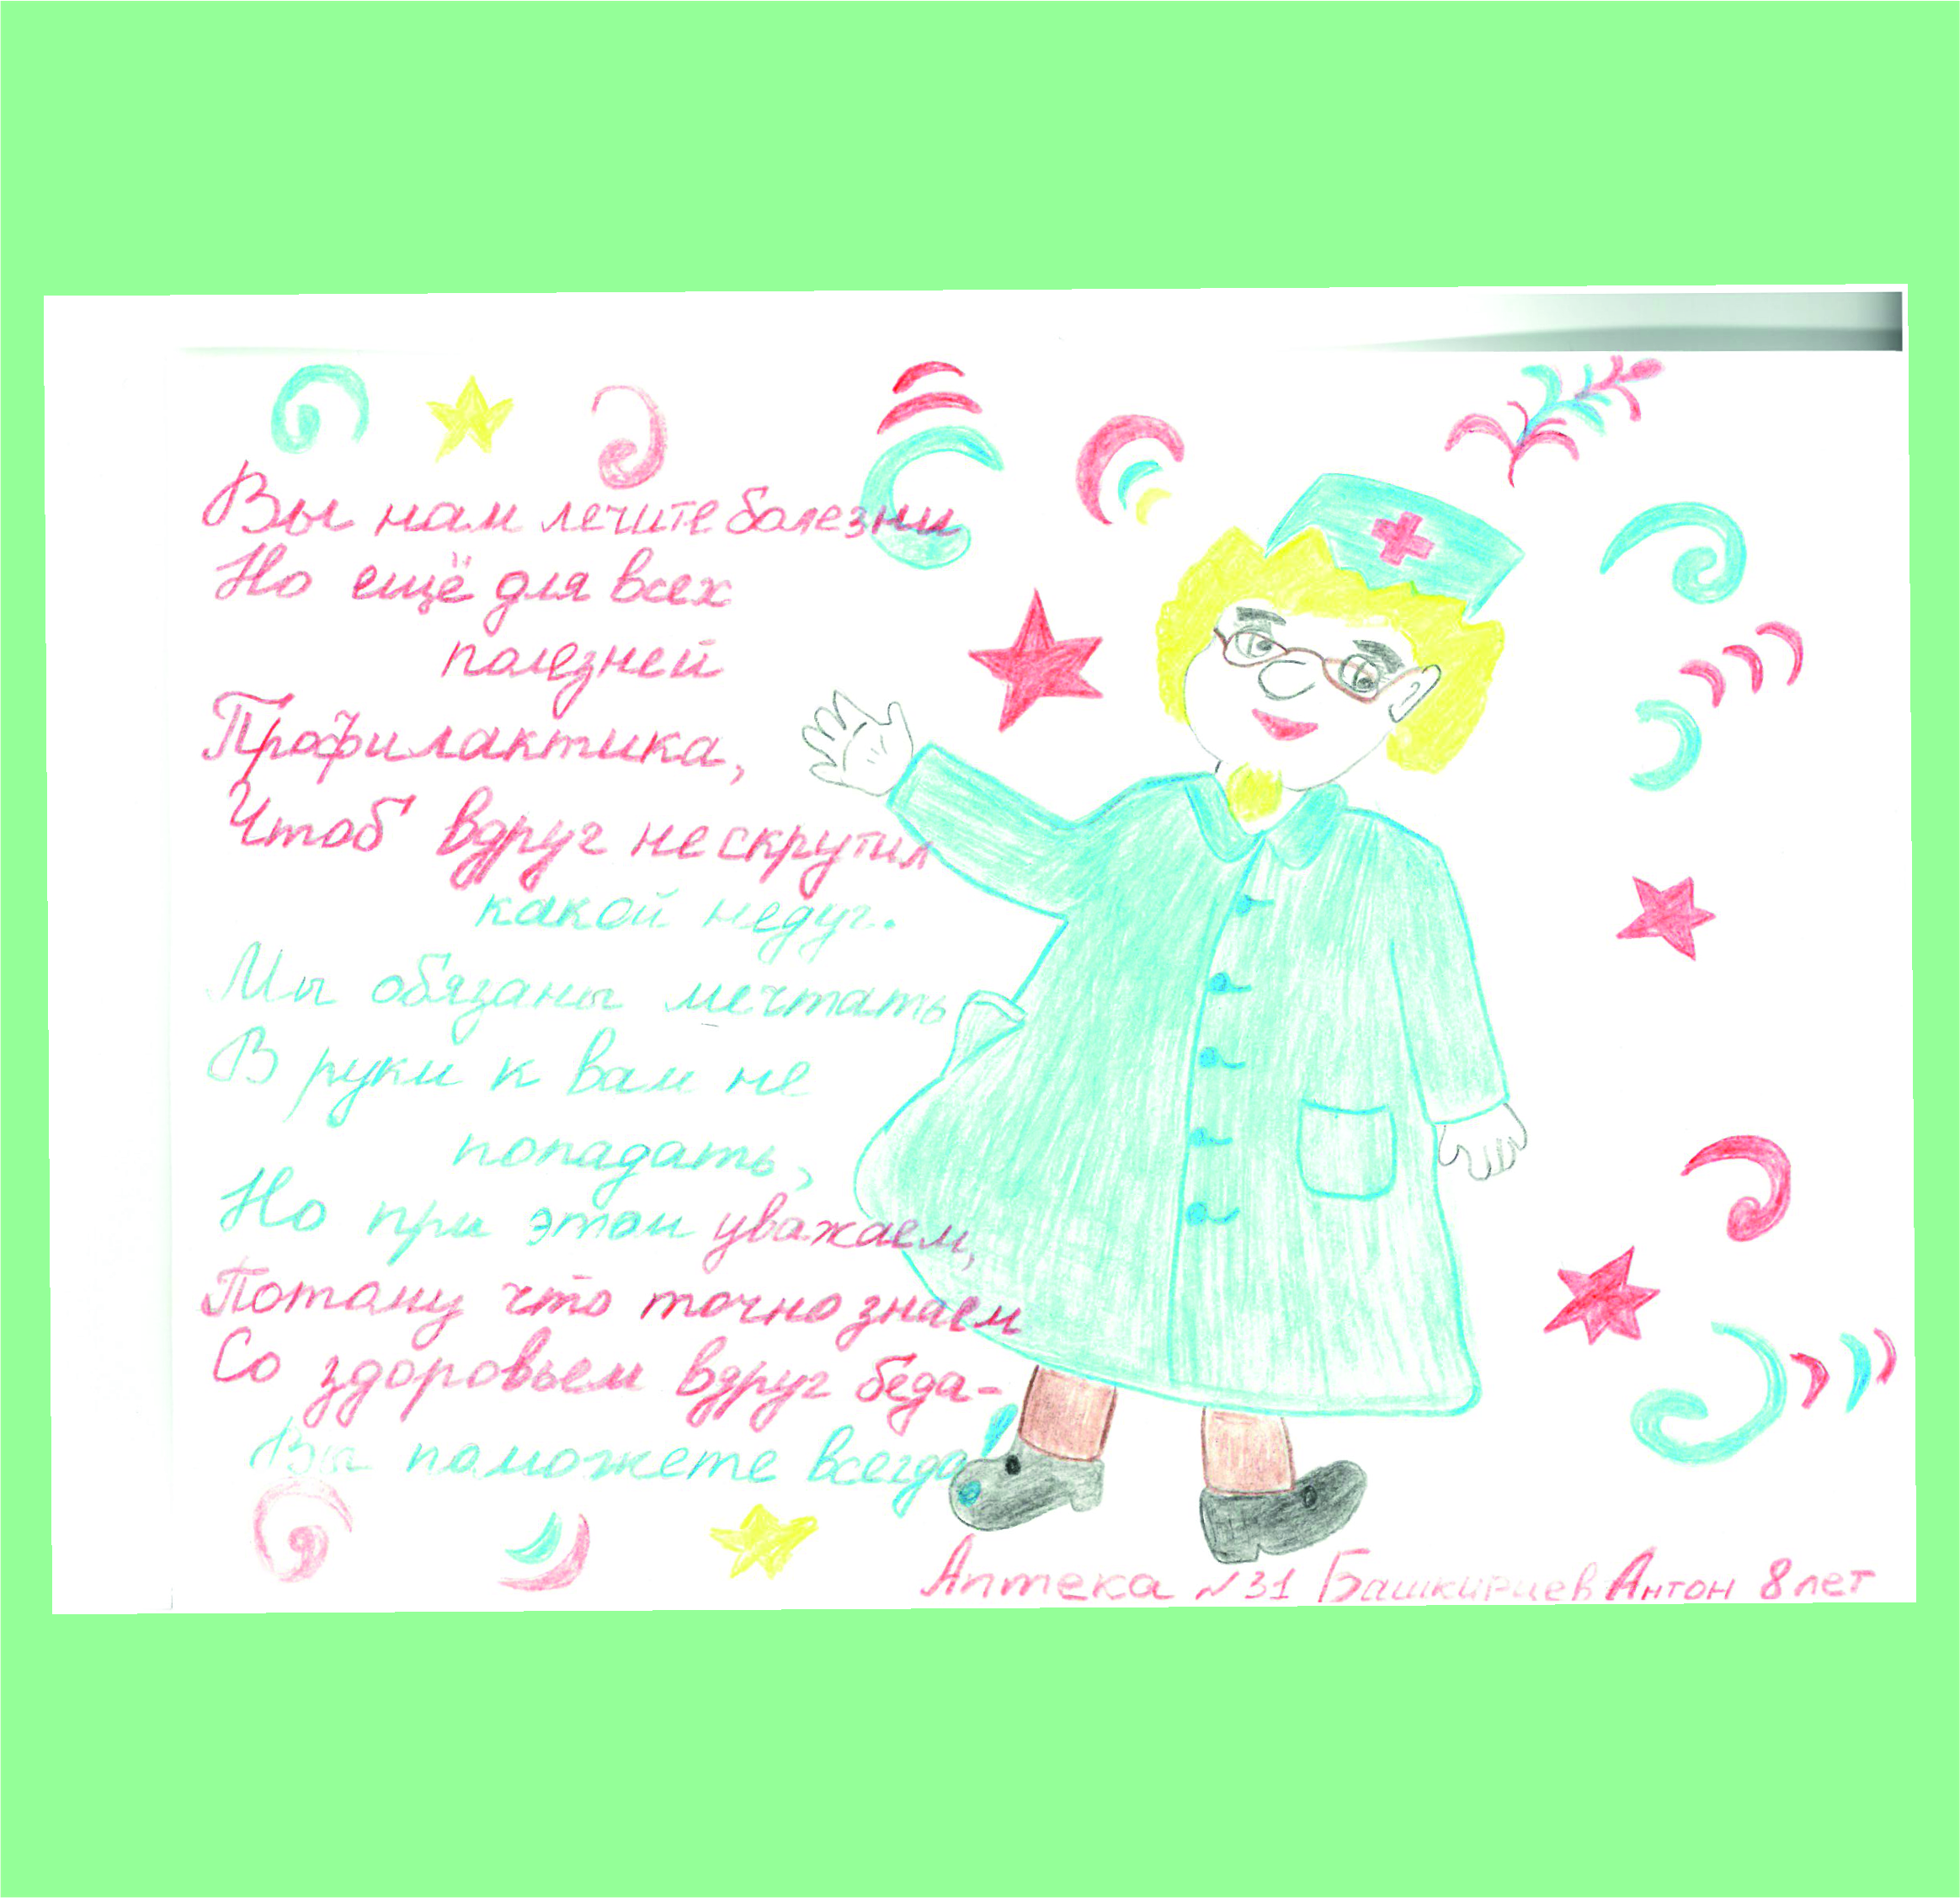 Вы нам лечите болезни
Но ещё для всех
полезней
Профилактика,
Чтоб вдруг не скрутил
какой недуг.
Мы обязаны мечтать
В руки к вам не
попадать,
Но при этом уважаем,
Потому что точно знаем
Со здоровьем вдруг беда-
Вы поможете всегда!
Аптека №31 Башкирцев Антон 8 лет